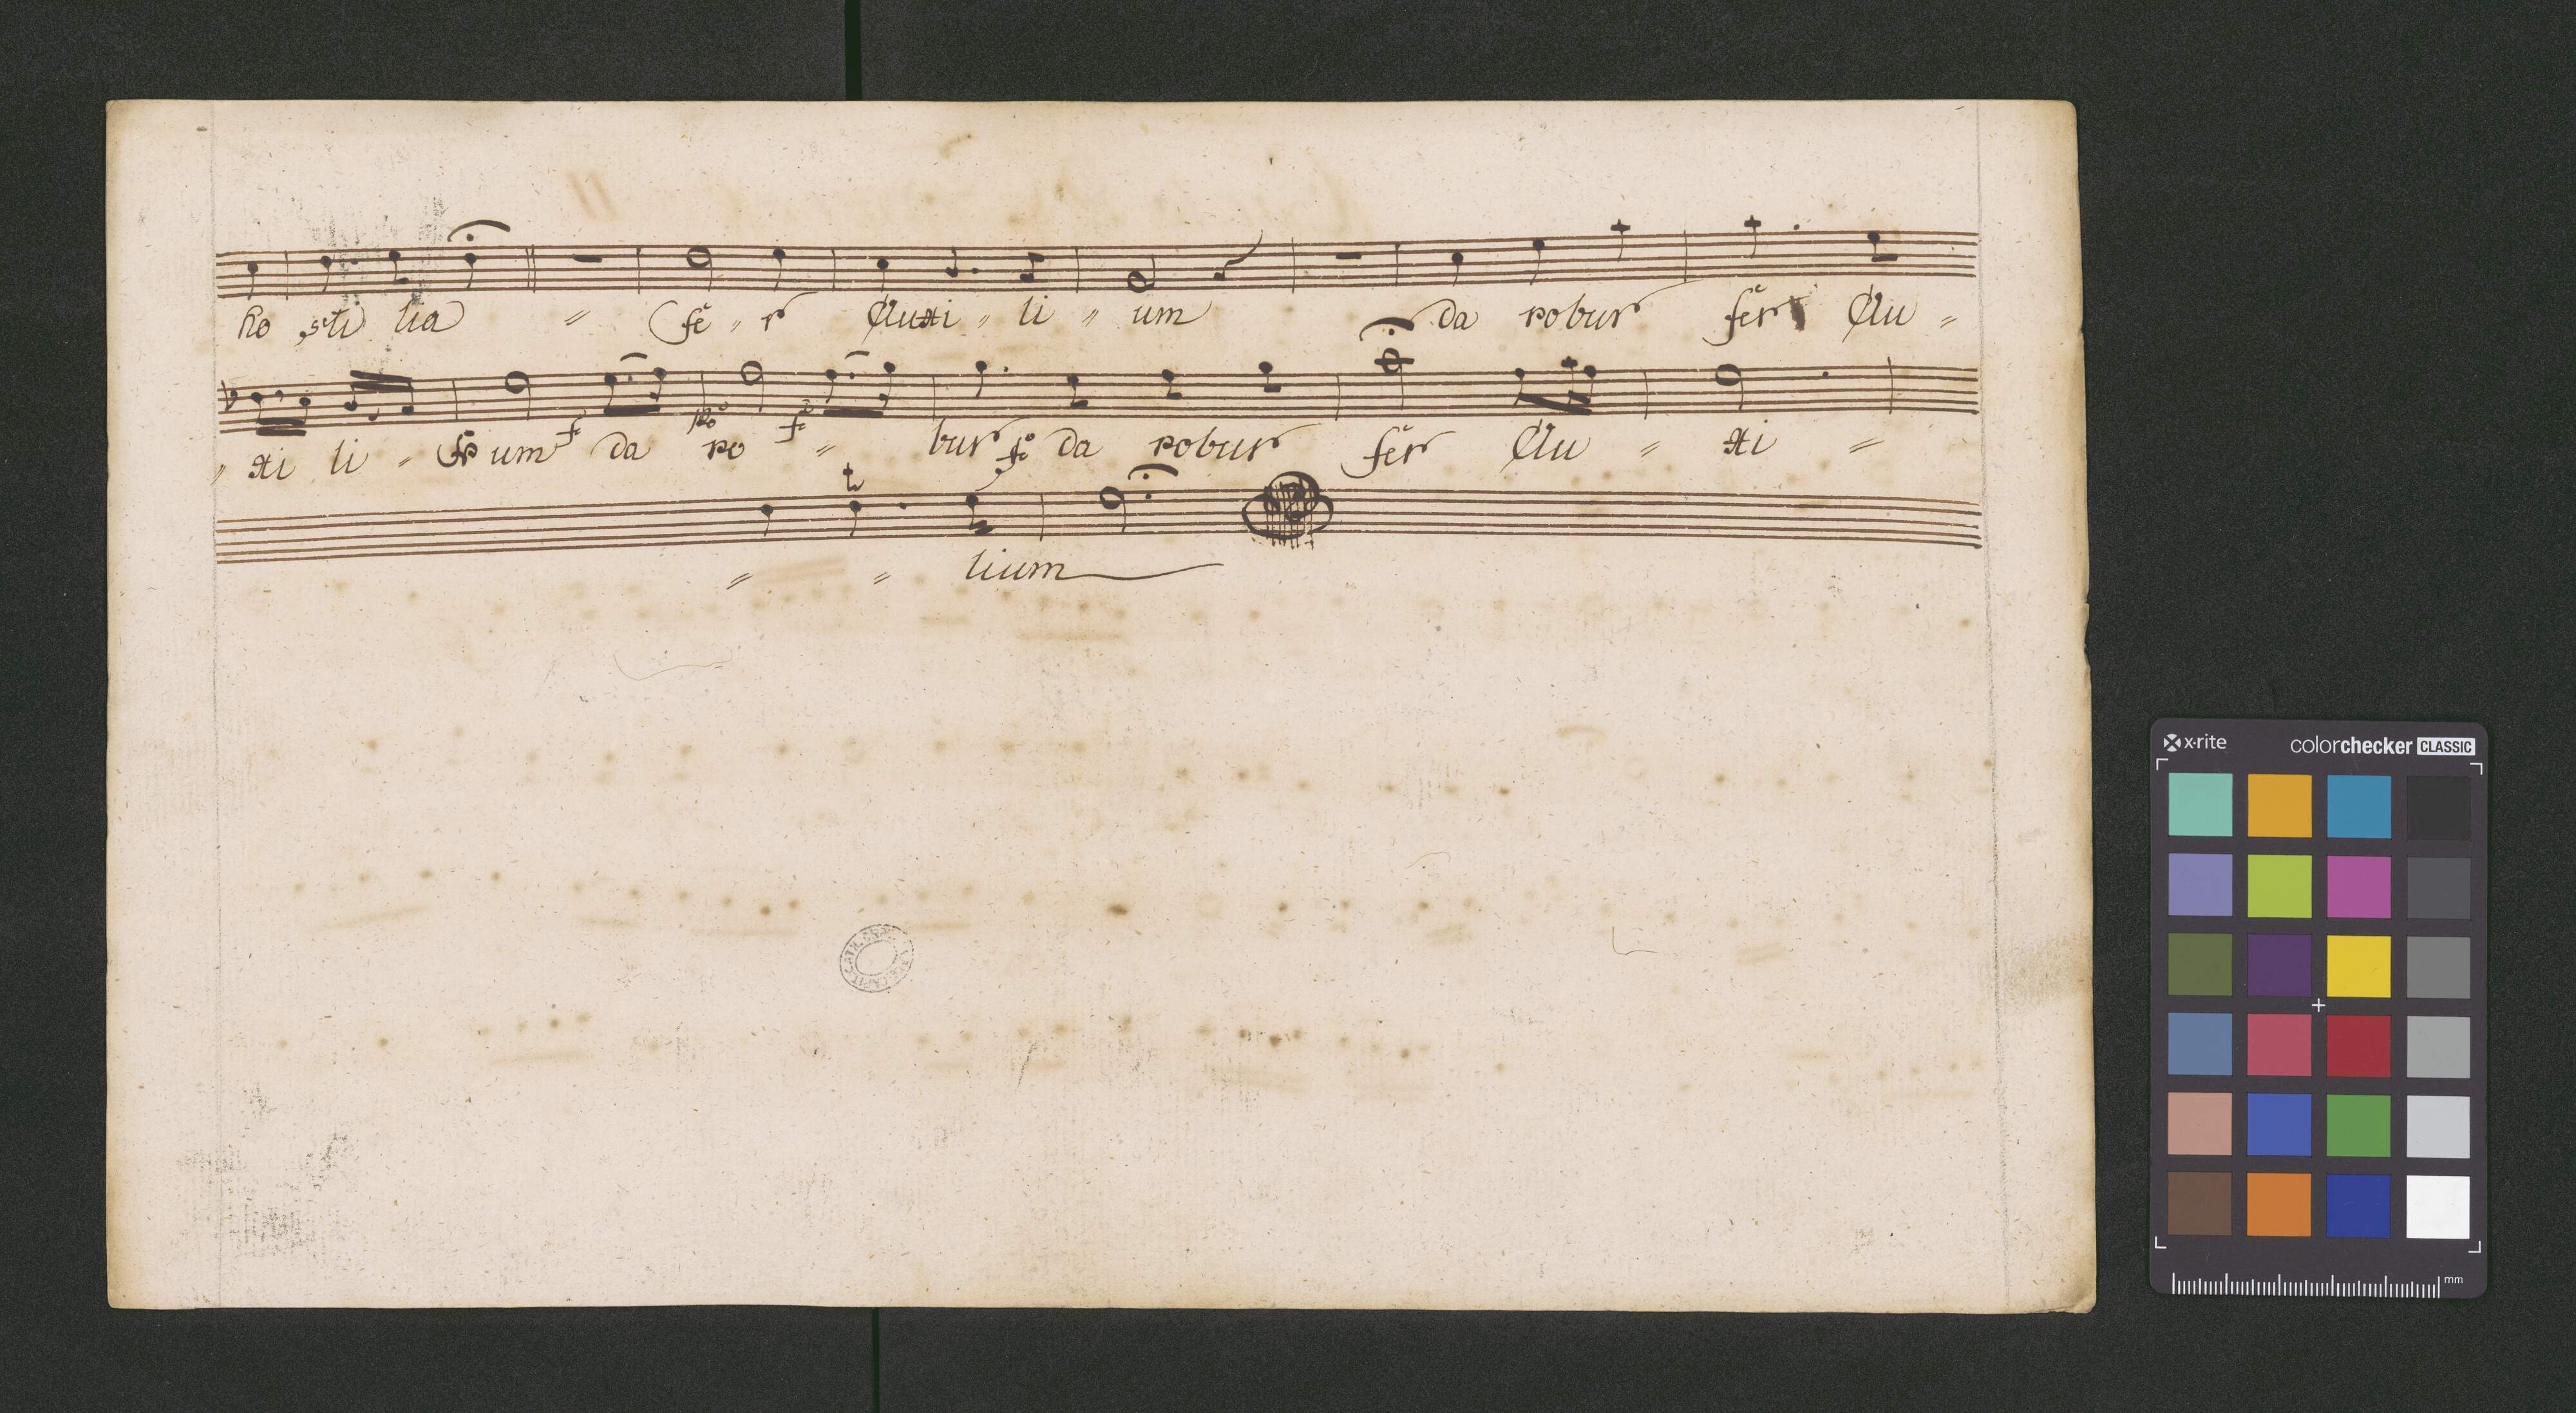 ho sti lia = fe = r Auxi = li = um da robur fer Au =
= xi li = um f da po ro f = bur fo da robur fer Au = xi =
t
= = lium
x·rite colorchecker CLASSIC
mm